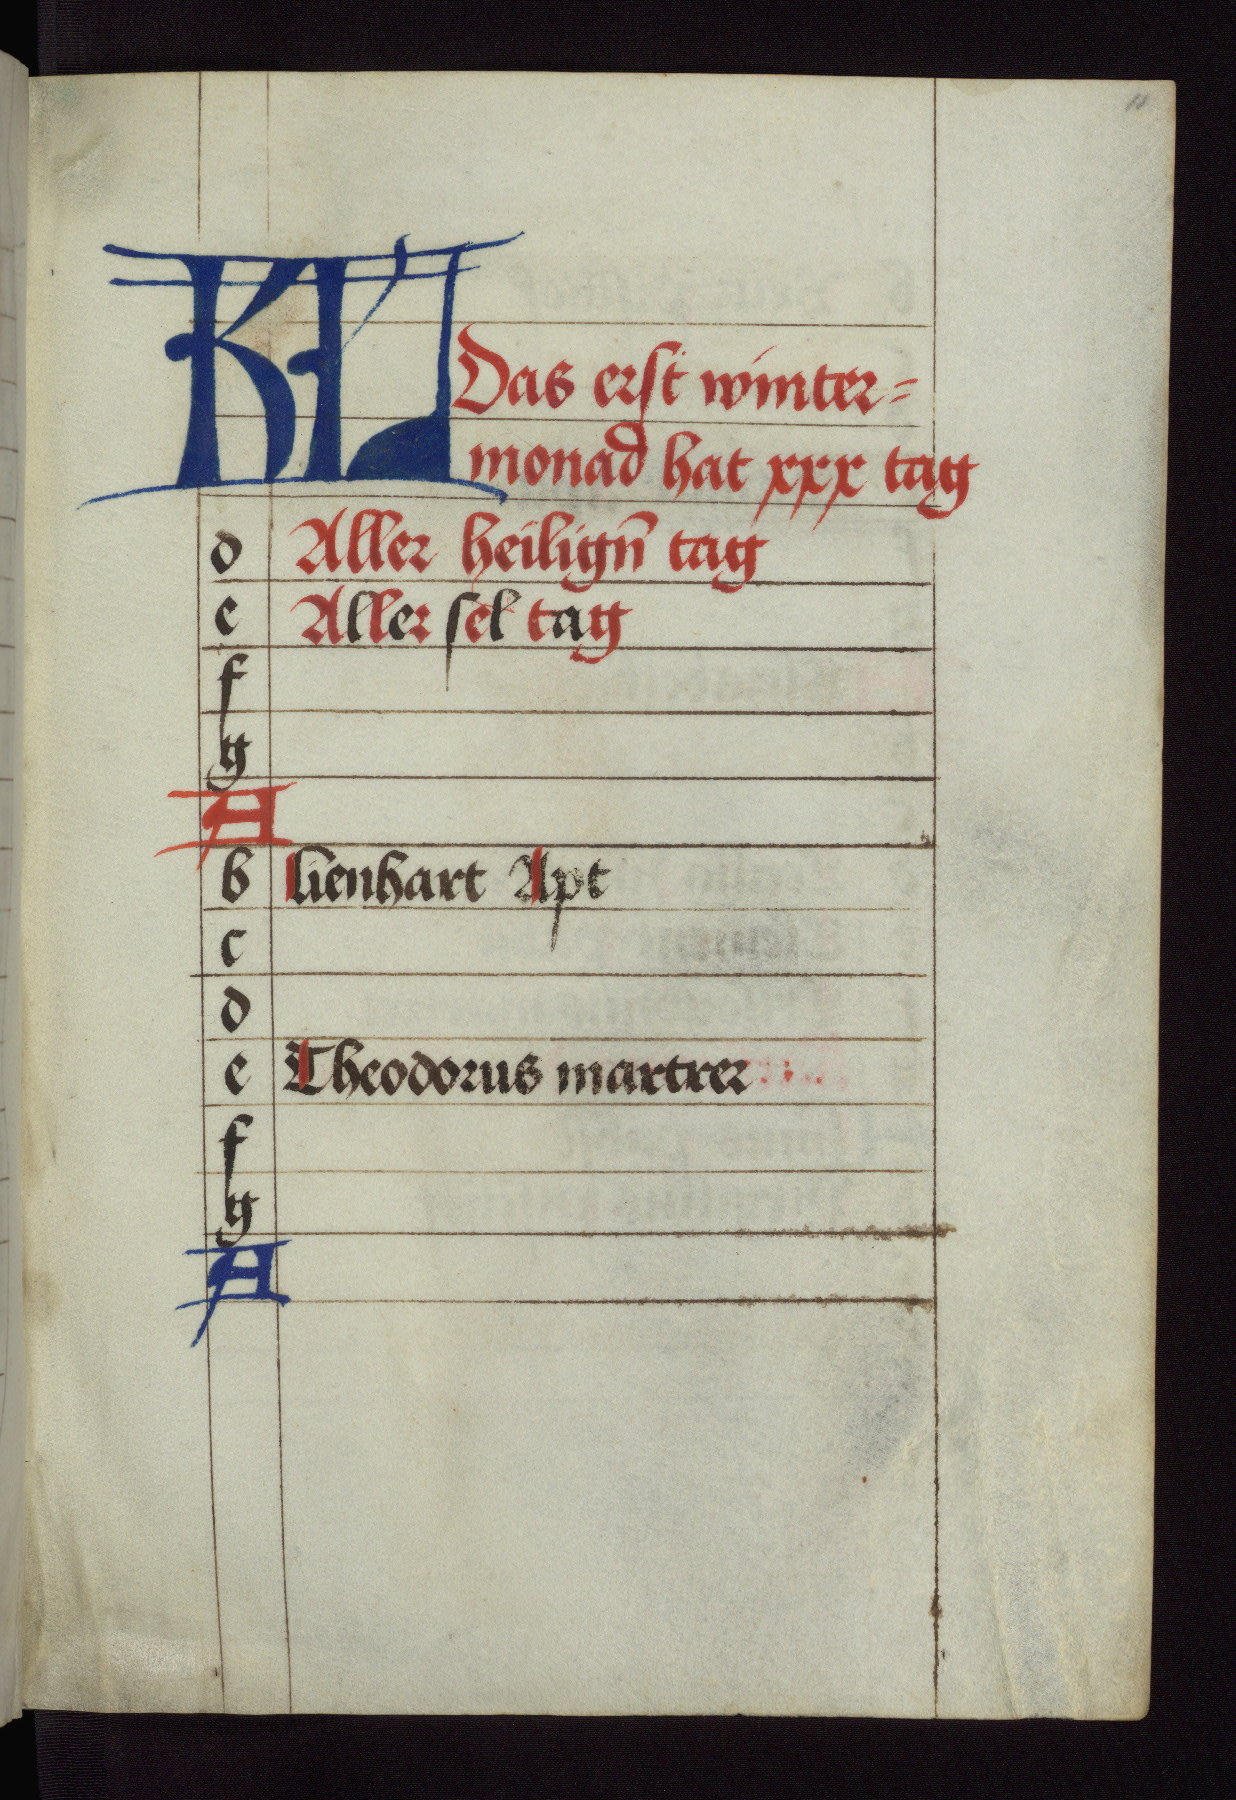 KL Das erst winter=
monad hat xxx tag
d Aller heilign̄ tag
e Aller sel tag
f
g
A
b lienhart Apt
c
d
e Theodorus martrer
f
g
A